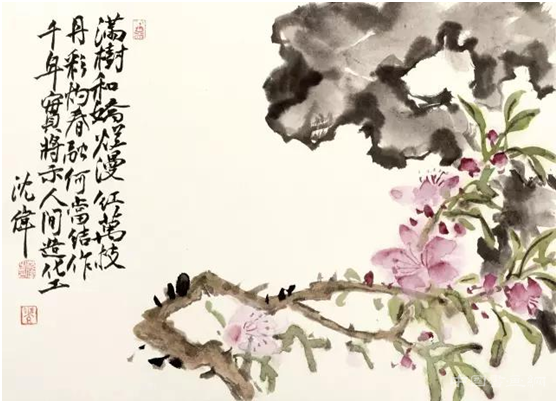 滿樹和嬌爛漫紅萬枝
丹彩灼春融何當結作
千年實將示人间造化工
沈偉